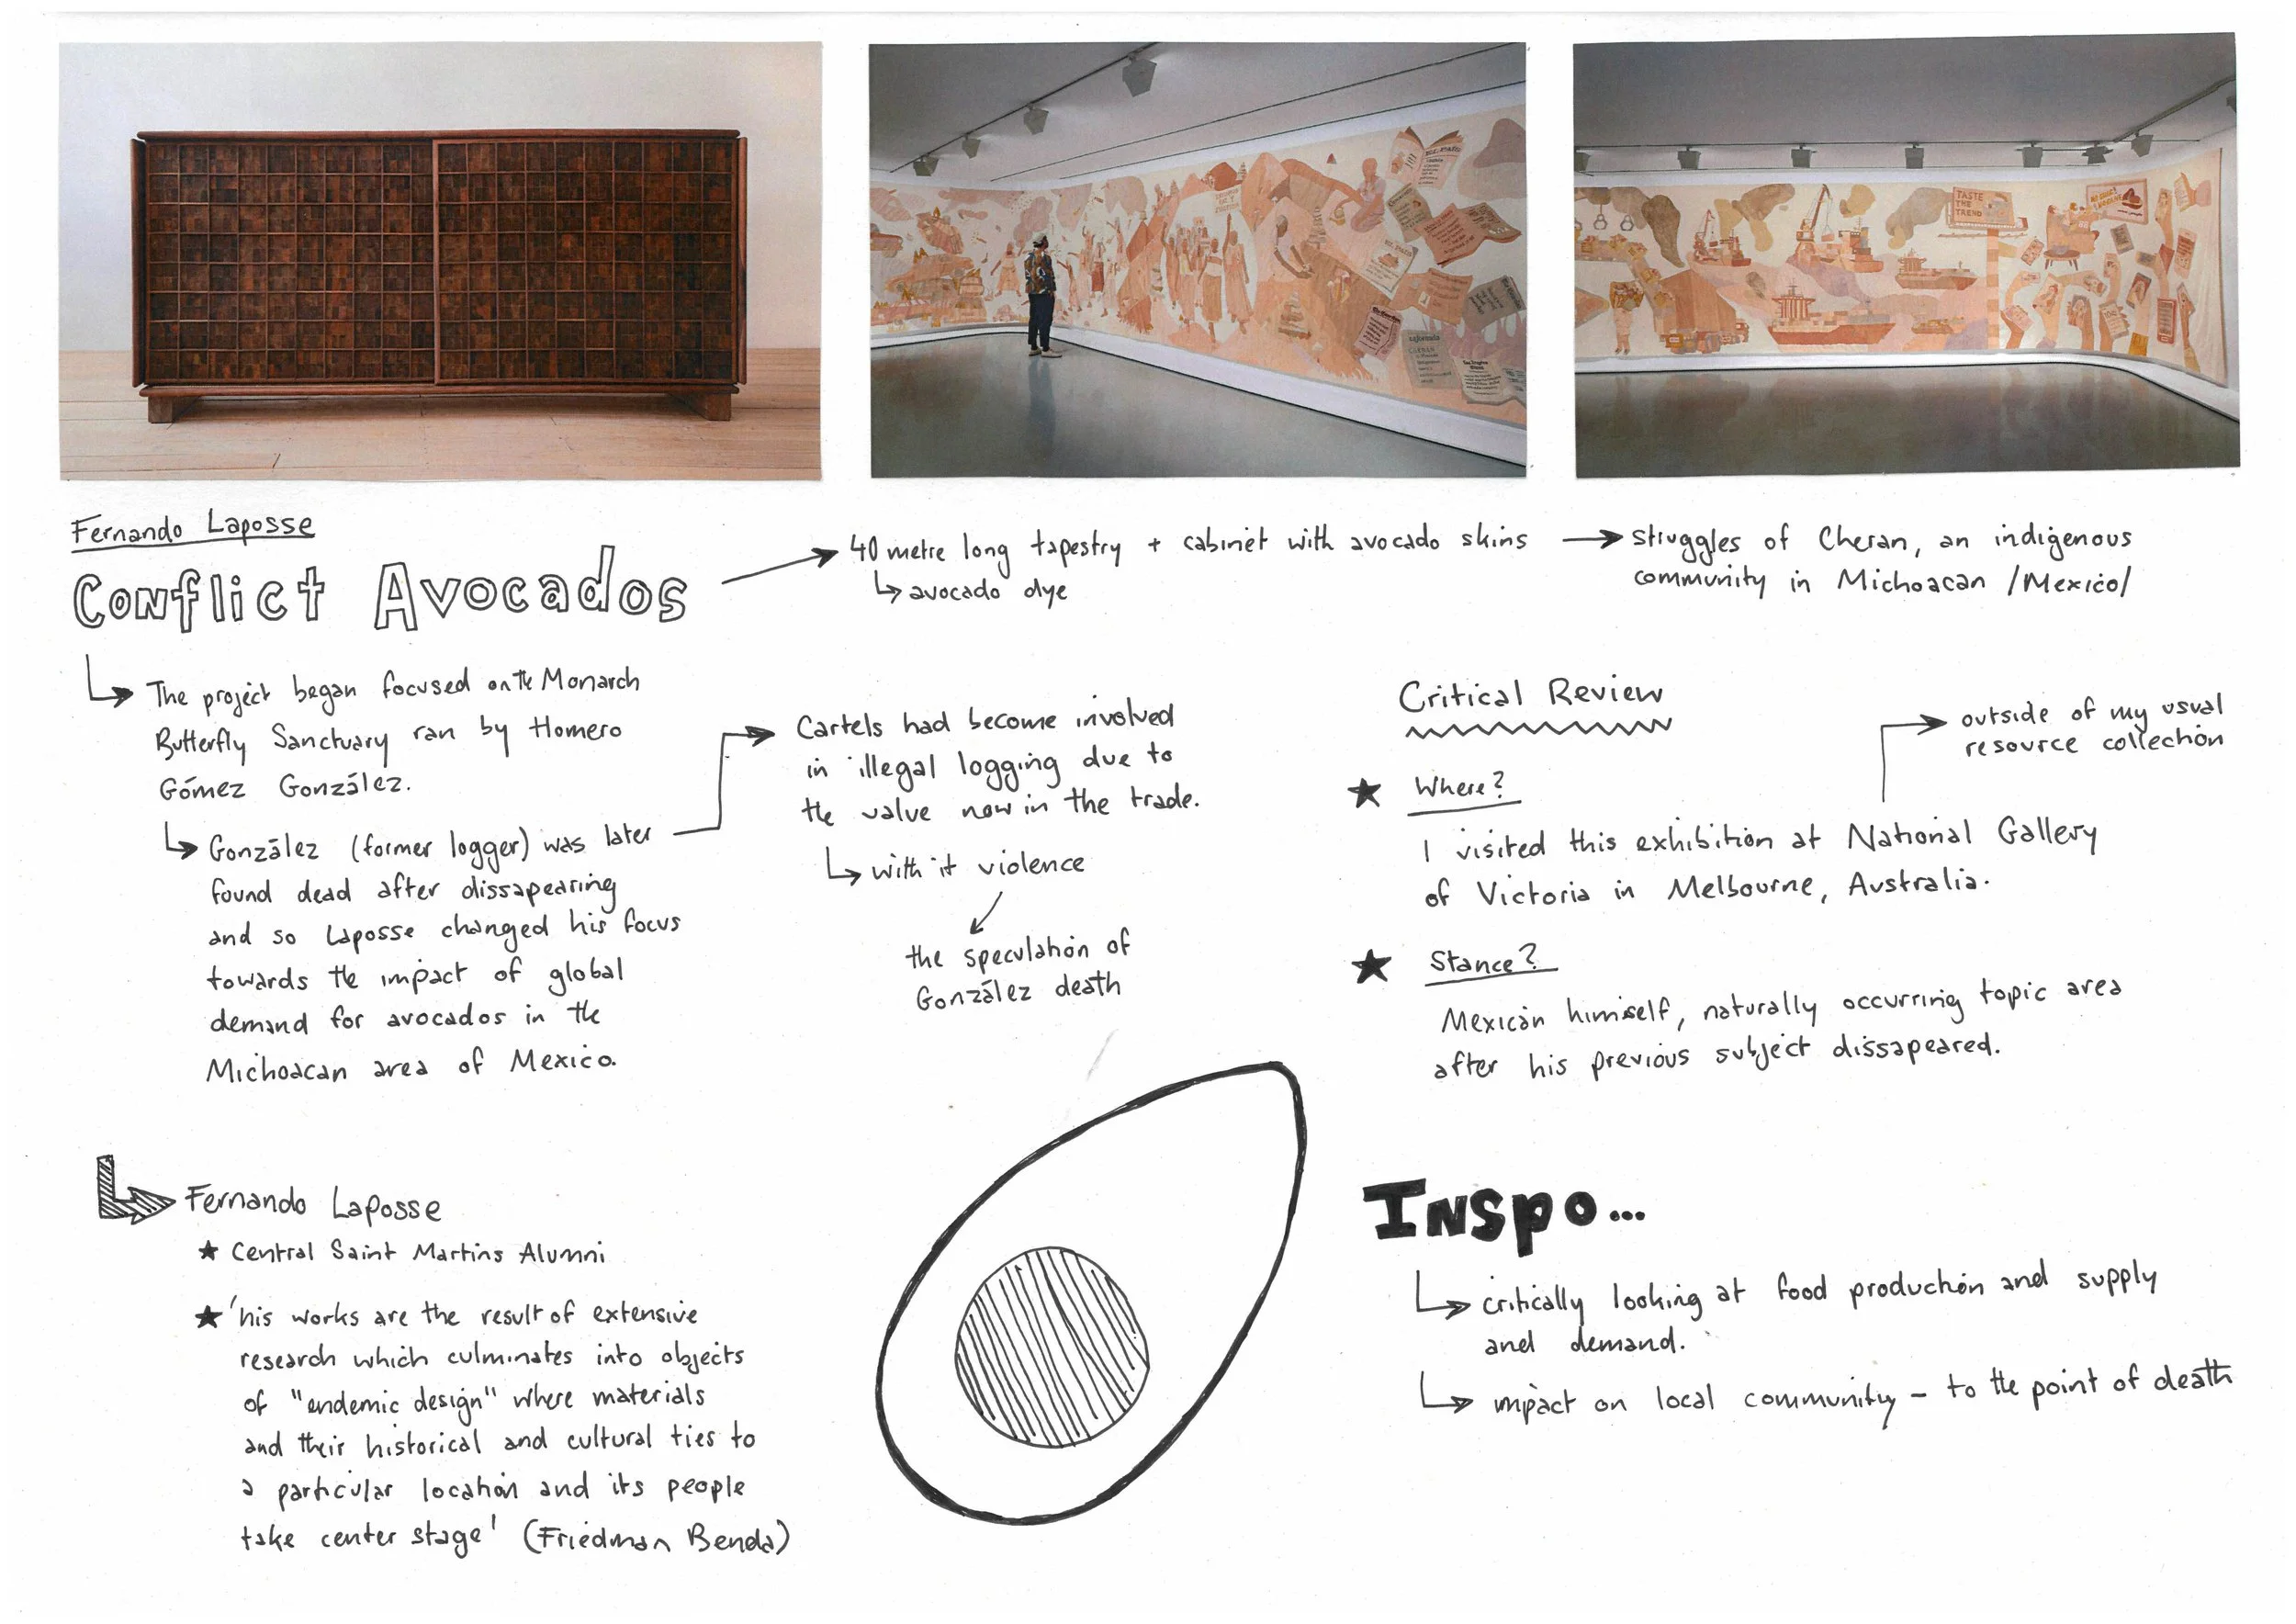 TASTE
THE
TREND
Fernando Laposse
Conflict Avocados
40 metre long tapestry + cabinet with avocado skins
avocado dye
struggles of Cheran, an indigenous
community in Michoacan /Mexico/
The project began focused on the Monarch
Butterfly Sanctuary ran by Homero
Gómez González.
González (former logger) was later
found dead after dissapearing
and so Laposse changed his focus
towards the impact of global
demand for avocados in the
Michoacan area of Mexico.
Cartels had become involved
in illegal logging due to
the value now in the trade.
with it violence
the speculation of
González death
Critical Review
outside of my usual
resource collection
★ Where?
I visited this exhibition at National Gallery
of Victoria in Melbourne, Australia.
★ Stance?
Mexican himself, naturally occurring topic area
after his previous subject dissapeared.
Fernando Laposse
★ Central Saint Martins Alumni
★ 'his works are the result of extensive
research which culminates into objects
of "endemic design" where materials
and their historical and cultural ties to
a particular location and its people
take center stage' (Friedman Benda)
Inspo...
critically looking at food production and supply
and demand.
impact on local community - to the point of death